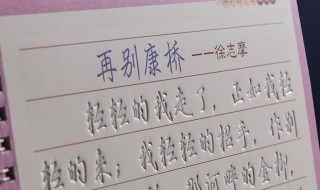 再别康桥 ——徐志摩
轻轻的我走了，正如我轻
轻的来；我轻轻的招手，作别
那河畔的金柳，